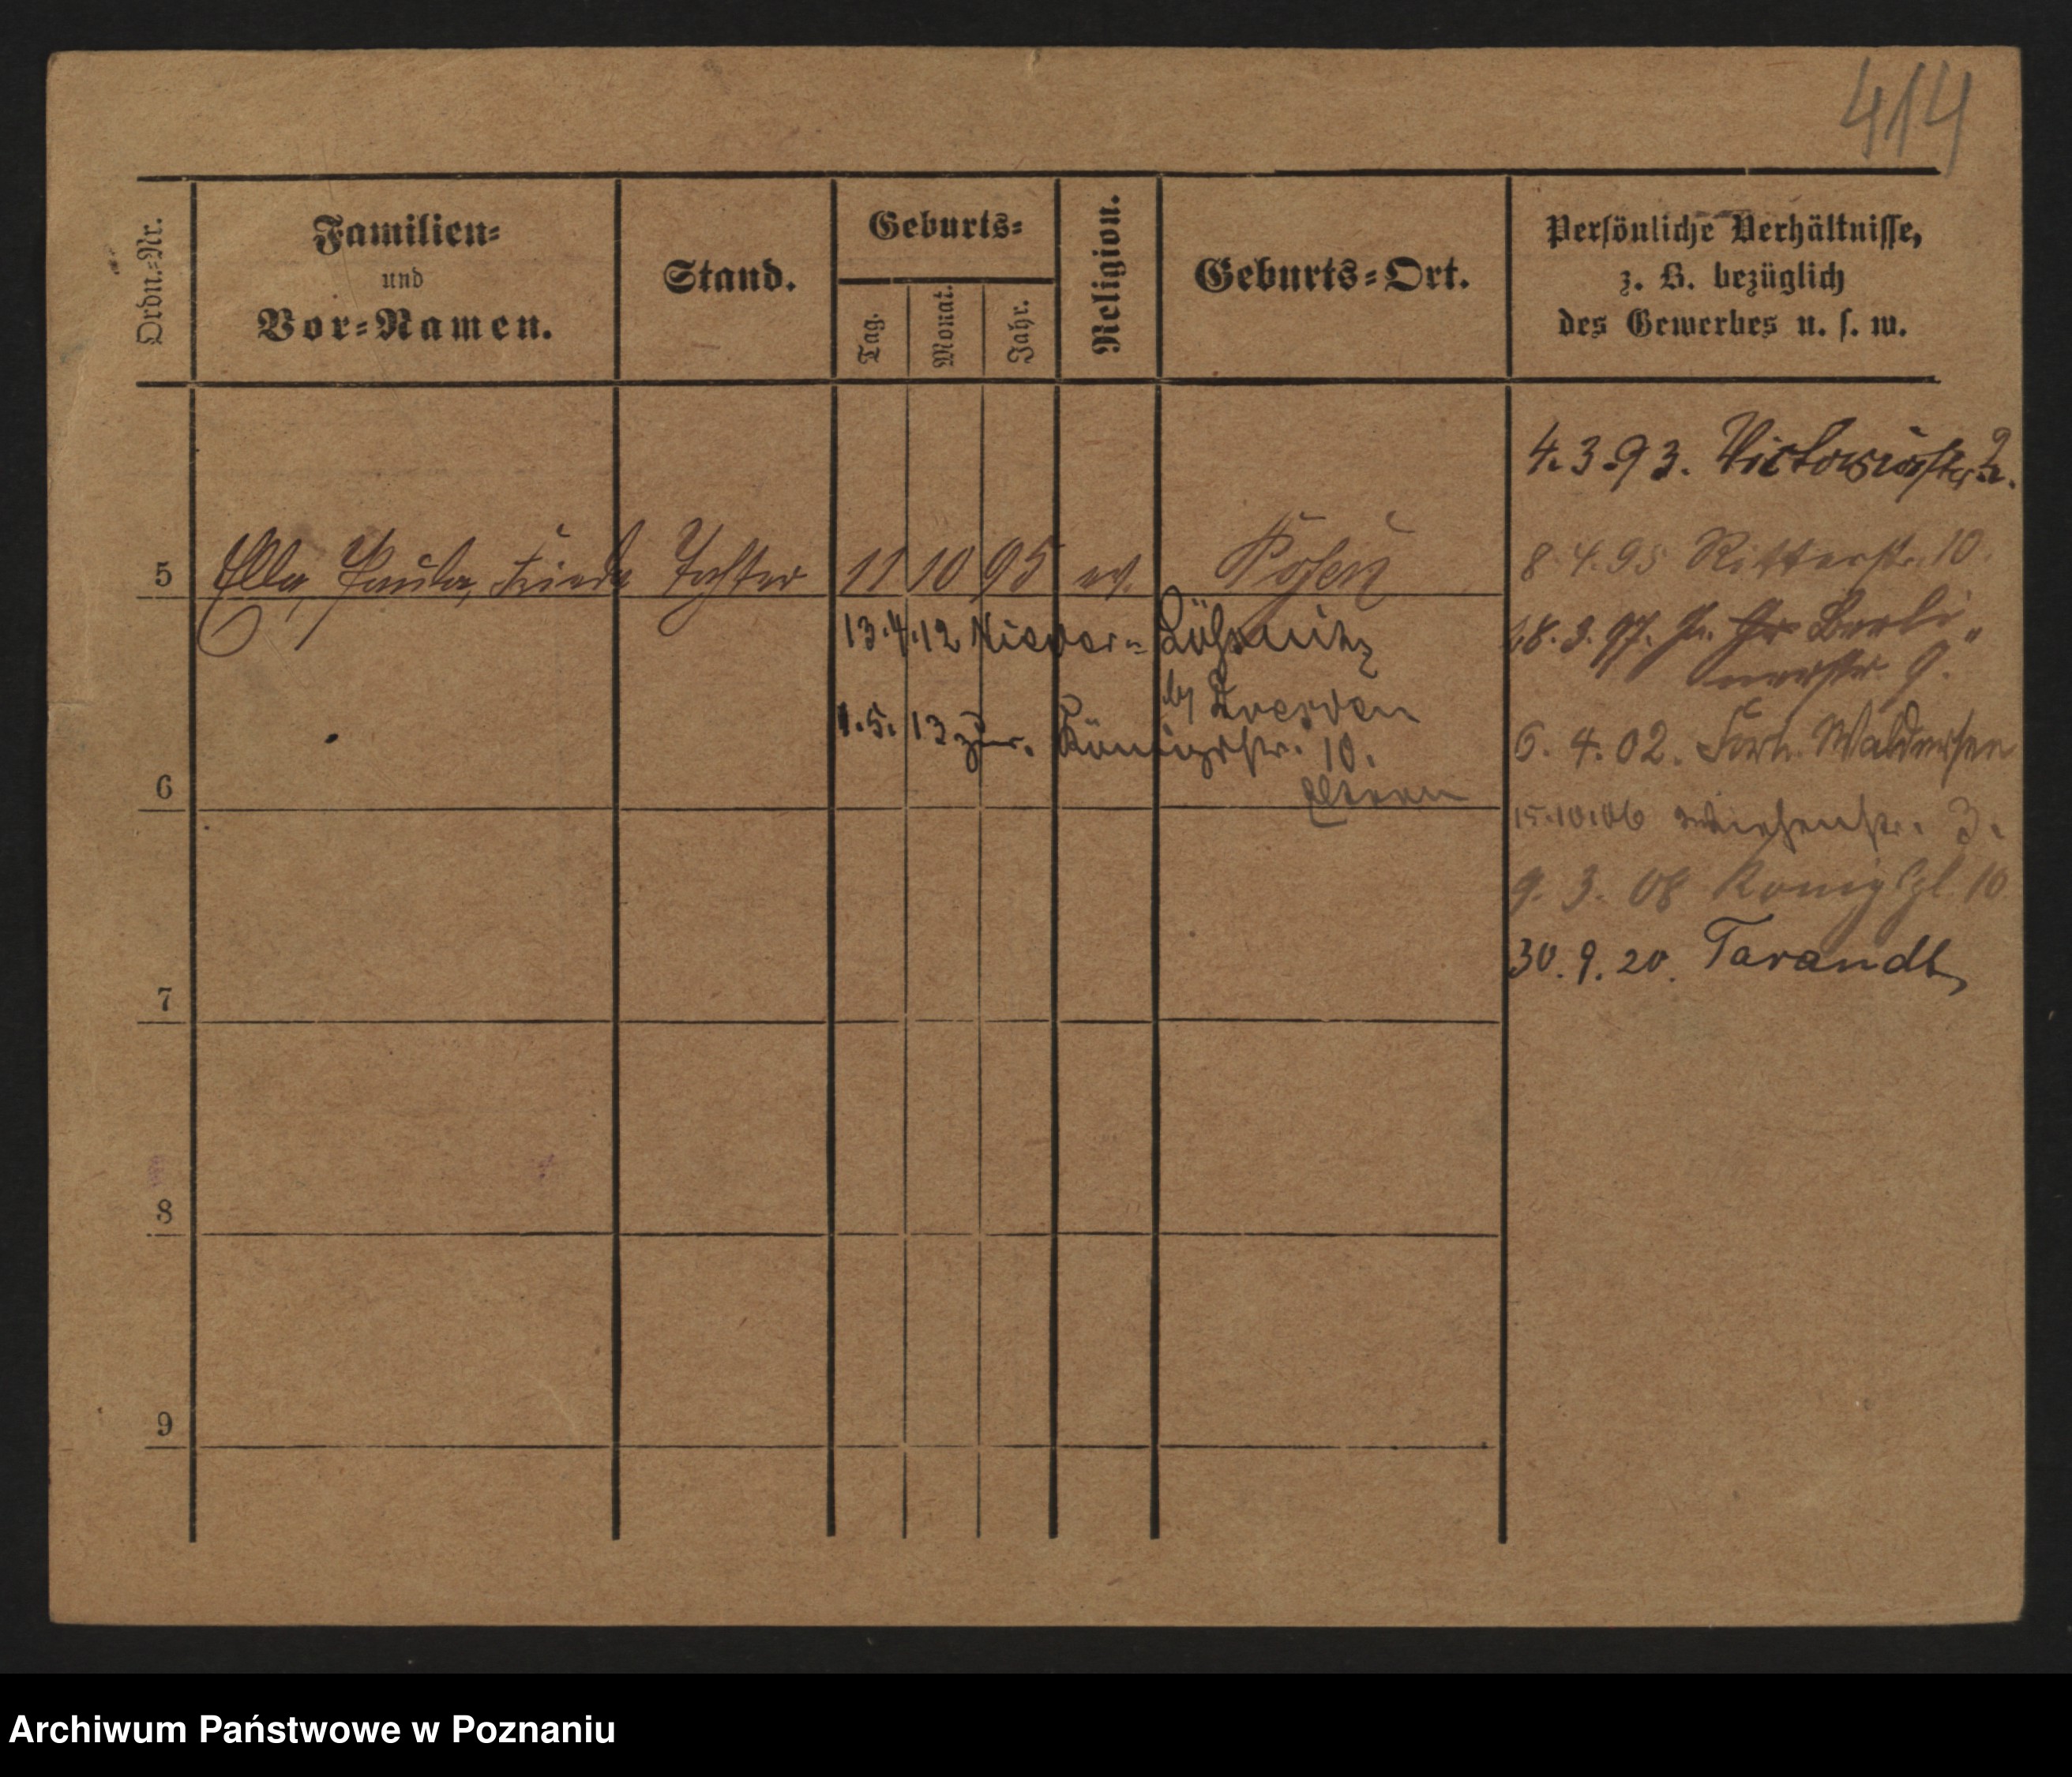 414
Ordn.=Nr.
Familien=
und
Vor=Namen.
Stand.
Geburts=
Tag.
Monat.
Jahr.
Religion.
Geburts=Ort.
Persönliche Verhältnisse,
z. B. bezüglich
des Gewerbes u. s. w.
4.3.93. Victoriastr. 2.
5 Ella, Paula, Frieda Tochter 11 10 95 ev. Posen
8.4.95 Ritterstr. 10
13.4.12 Nieder=Lößnitz
b/ Dresden
18.3.97. Berli„
nerstr. 9.
1.5.13 zur. Königstr. 10.
Eltern
6. 4. 02. Fort Waldersee
6
15.10.06 Wiesenstr. 3.
9. 3. 08 Königspl. 10
30. 9. 20. Tarandt
7
8
9
Archiwum Państwowe w Poznaniu